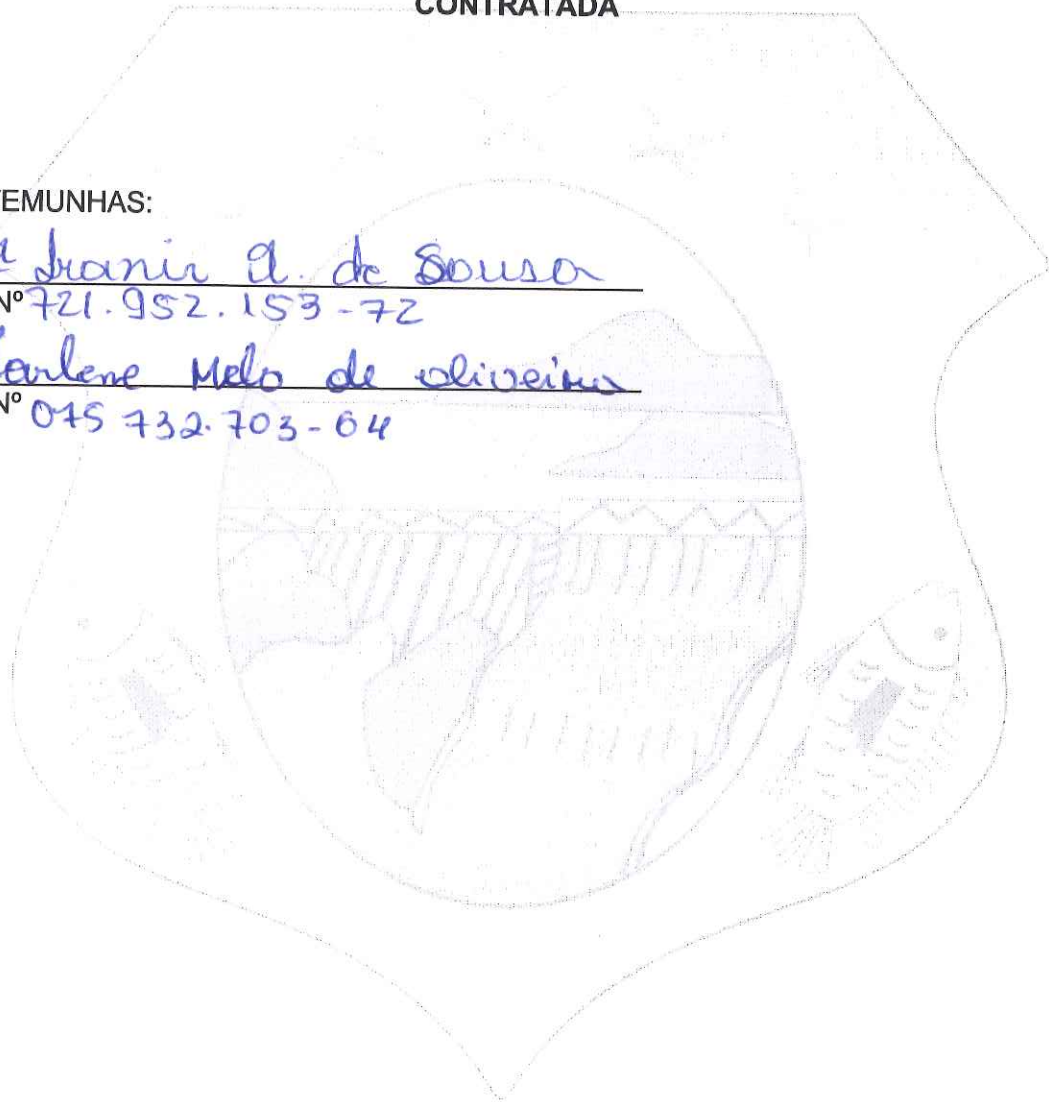 CONTRATADA
EMUNHAS:
Iranir A. de Sousa
Nº 721.952.153-72
Melo de oliveira
Nº 075 732.703-64